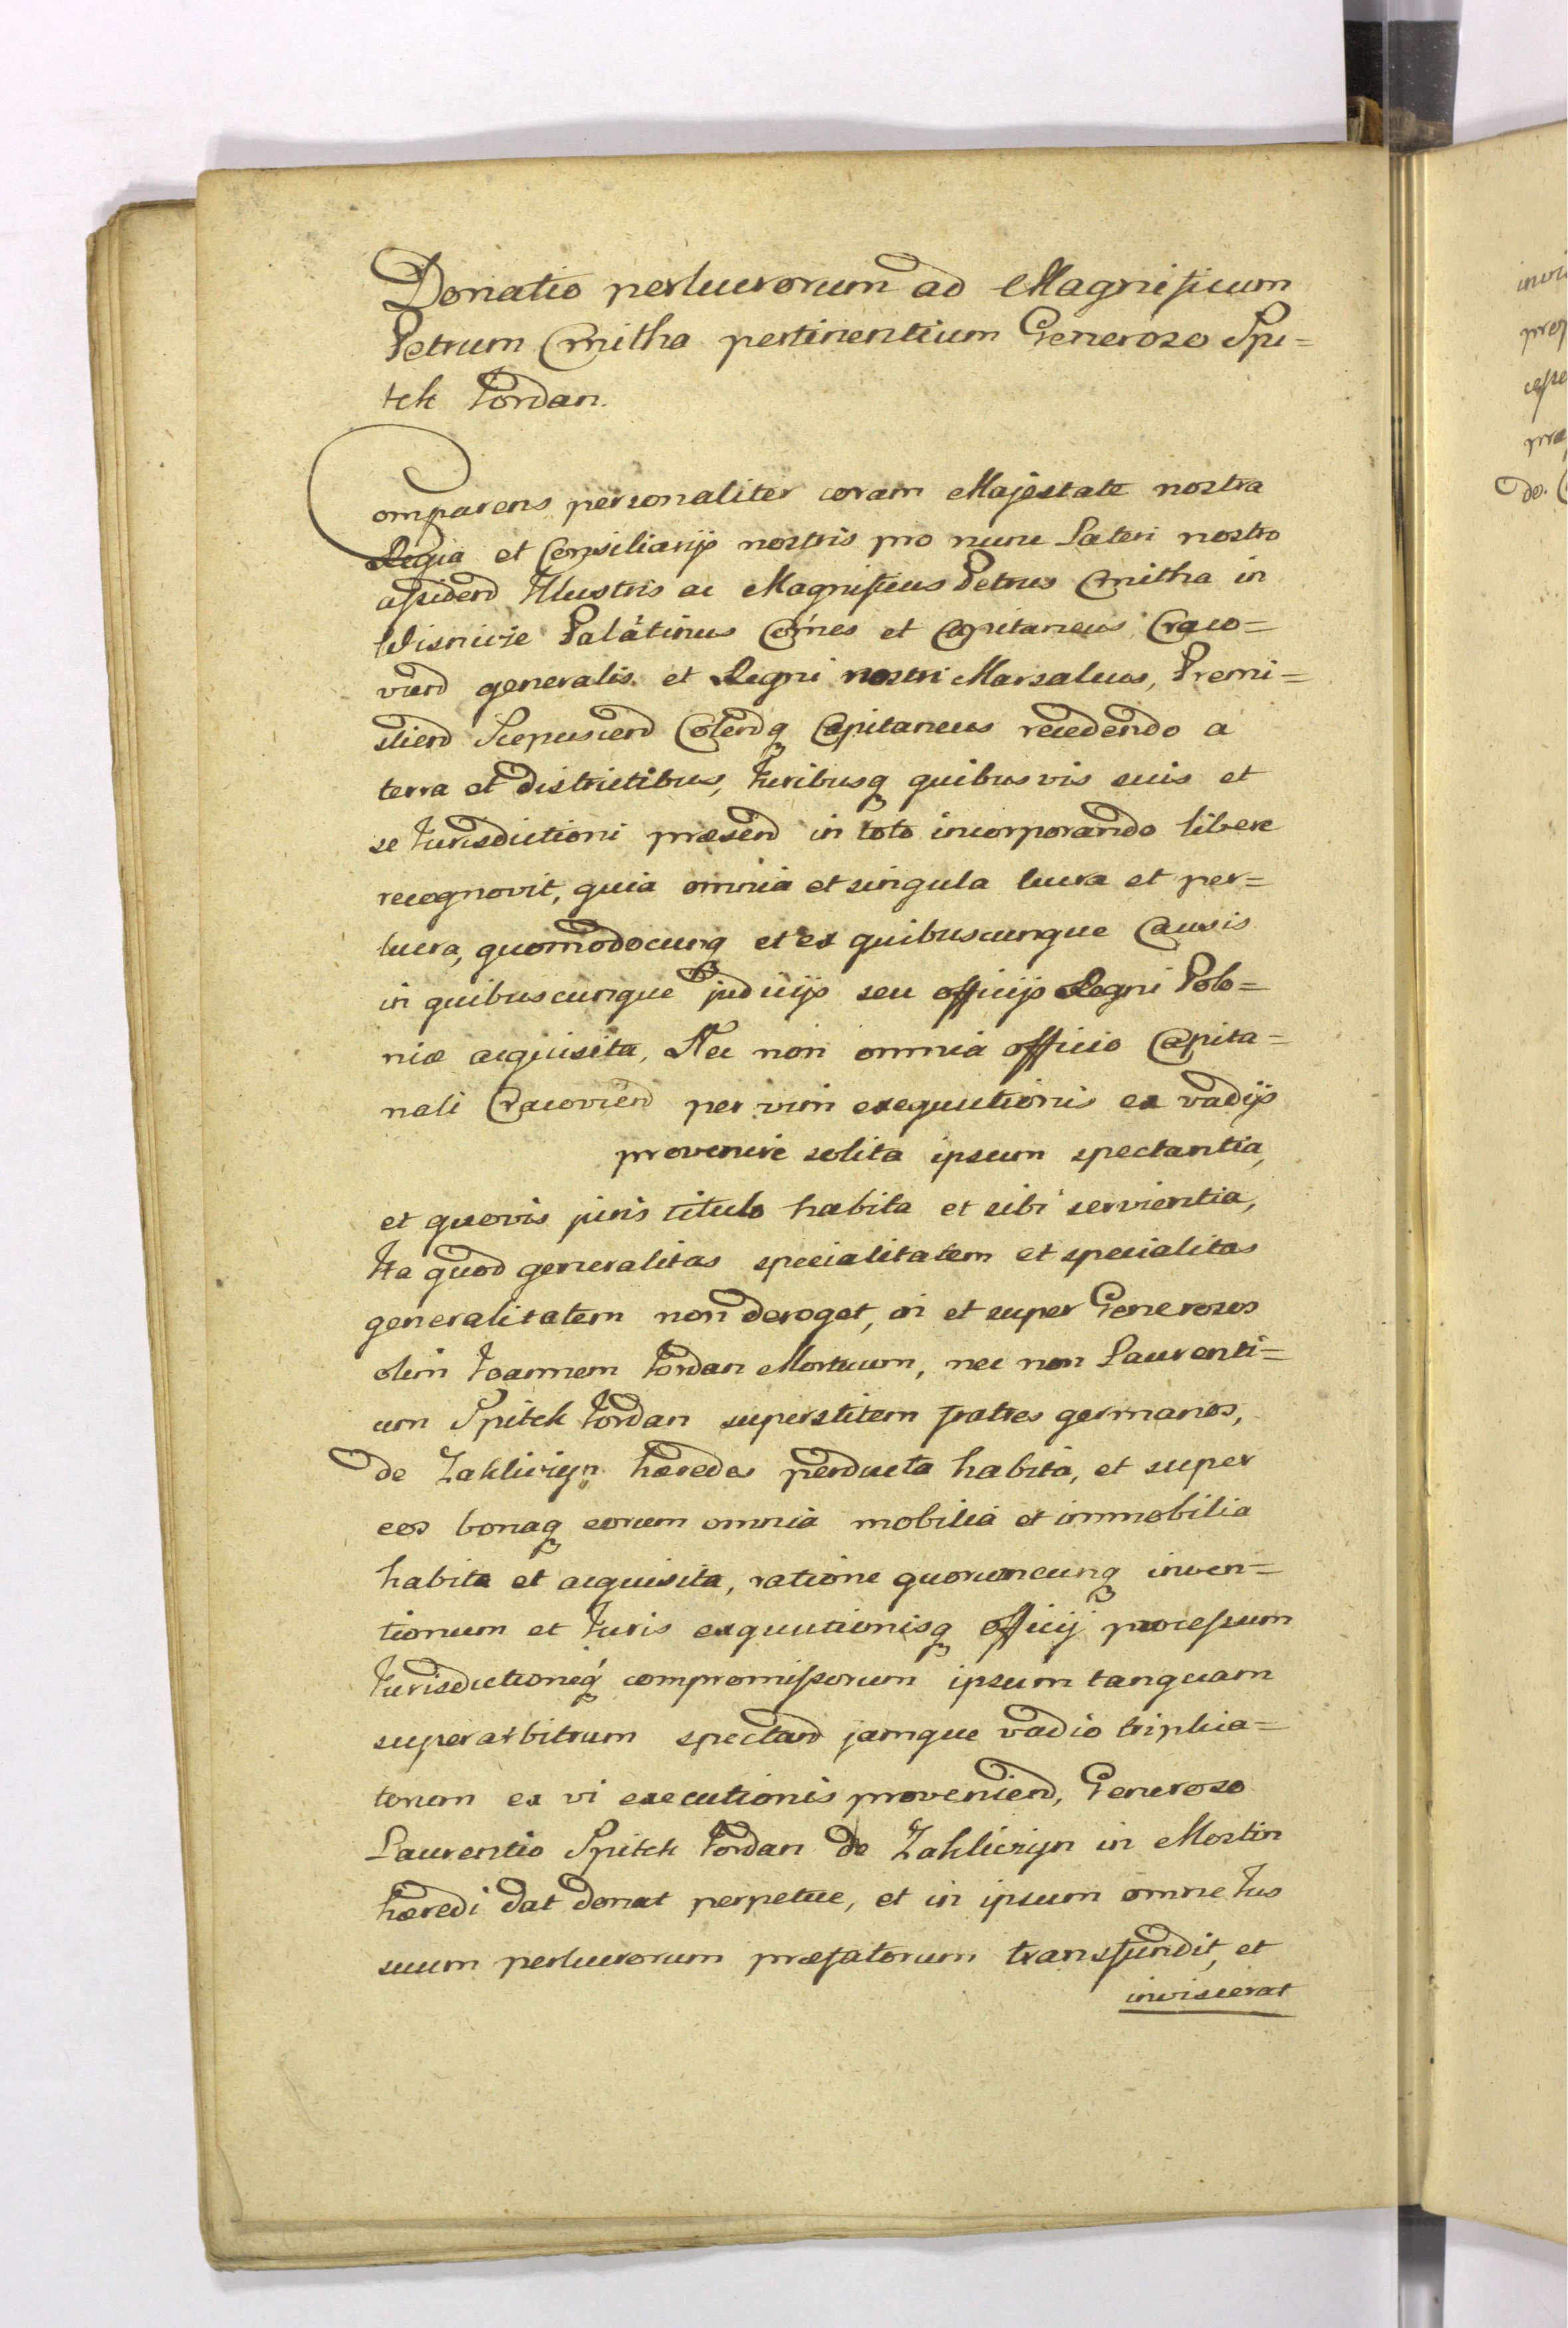 Donatio perlucrorum ad Magnificum
Petrum Cmitha pertinentium Generoso Spi=
tek Jordan.
Comparens personaliter coram Majestate nostra
Regia et Consiliarijs nostris pro nunc Lateri nostro
assidend Illustris ac Magnificus Petrus Cmitha in
Wisnicze Palatinus Comes et Capitaneus Craco=
viend generalis et Regni nostri Marsalcus, Premi=
sliend Scepusiend Colendq Capitaneus recedendo a
terra et districtibus, Juribusq quibusvis suis et
se Jurisdictioni præsend in toto incorporando libere
recognovit, quia omnia et singula lucra et per=
lucra, quomodocunq et ex quibuscunque Causis
in quibuscunque judicijs seu officijs Regni Polo=
niæ acquisita, Nec non omnia officio Capita=
nali Cracoviend per vim exequutionis ex vadijs
provenire solita ipsum spectantia,
et quovis juris titulo habita et sibi servientia,
Ita quod generalitas specialitatem et specialitas
generalitatem non deroget, in et super Generosos
olim Joannem Jordan Mortuum, nec non Laurenti=
um Spitek Jordan superstitem fratres germanos,
de Zakliczyn hæredes perducta habita, et super
eos bonaq eorum omnia mobilia et immobilia
habita et acquisita, ratione quoruncunq inven=
tionum et Juris exquutionisq officij processum
Jurisdictioneq compromissorum ipsum tanquam
superarbitrum spectand jamque vadio triplica=
torum ex vi executionis proveniend, Generoso
Laurentio Spitek Jordan de Zakliczyn in Mostin
hæredi dat donat perpetue, et in ipsum omne Jus
suum perlucrorum præfatorum transfundit, et
inviscerat